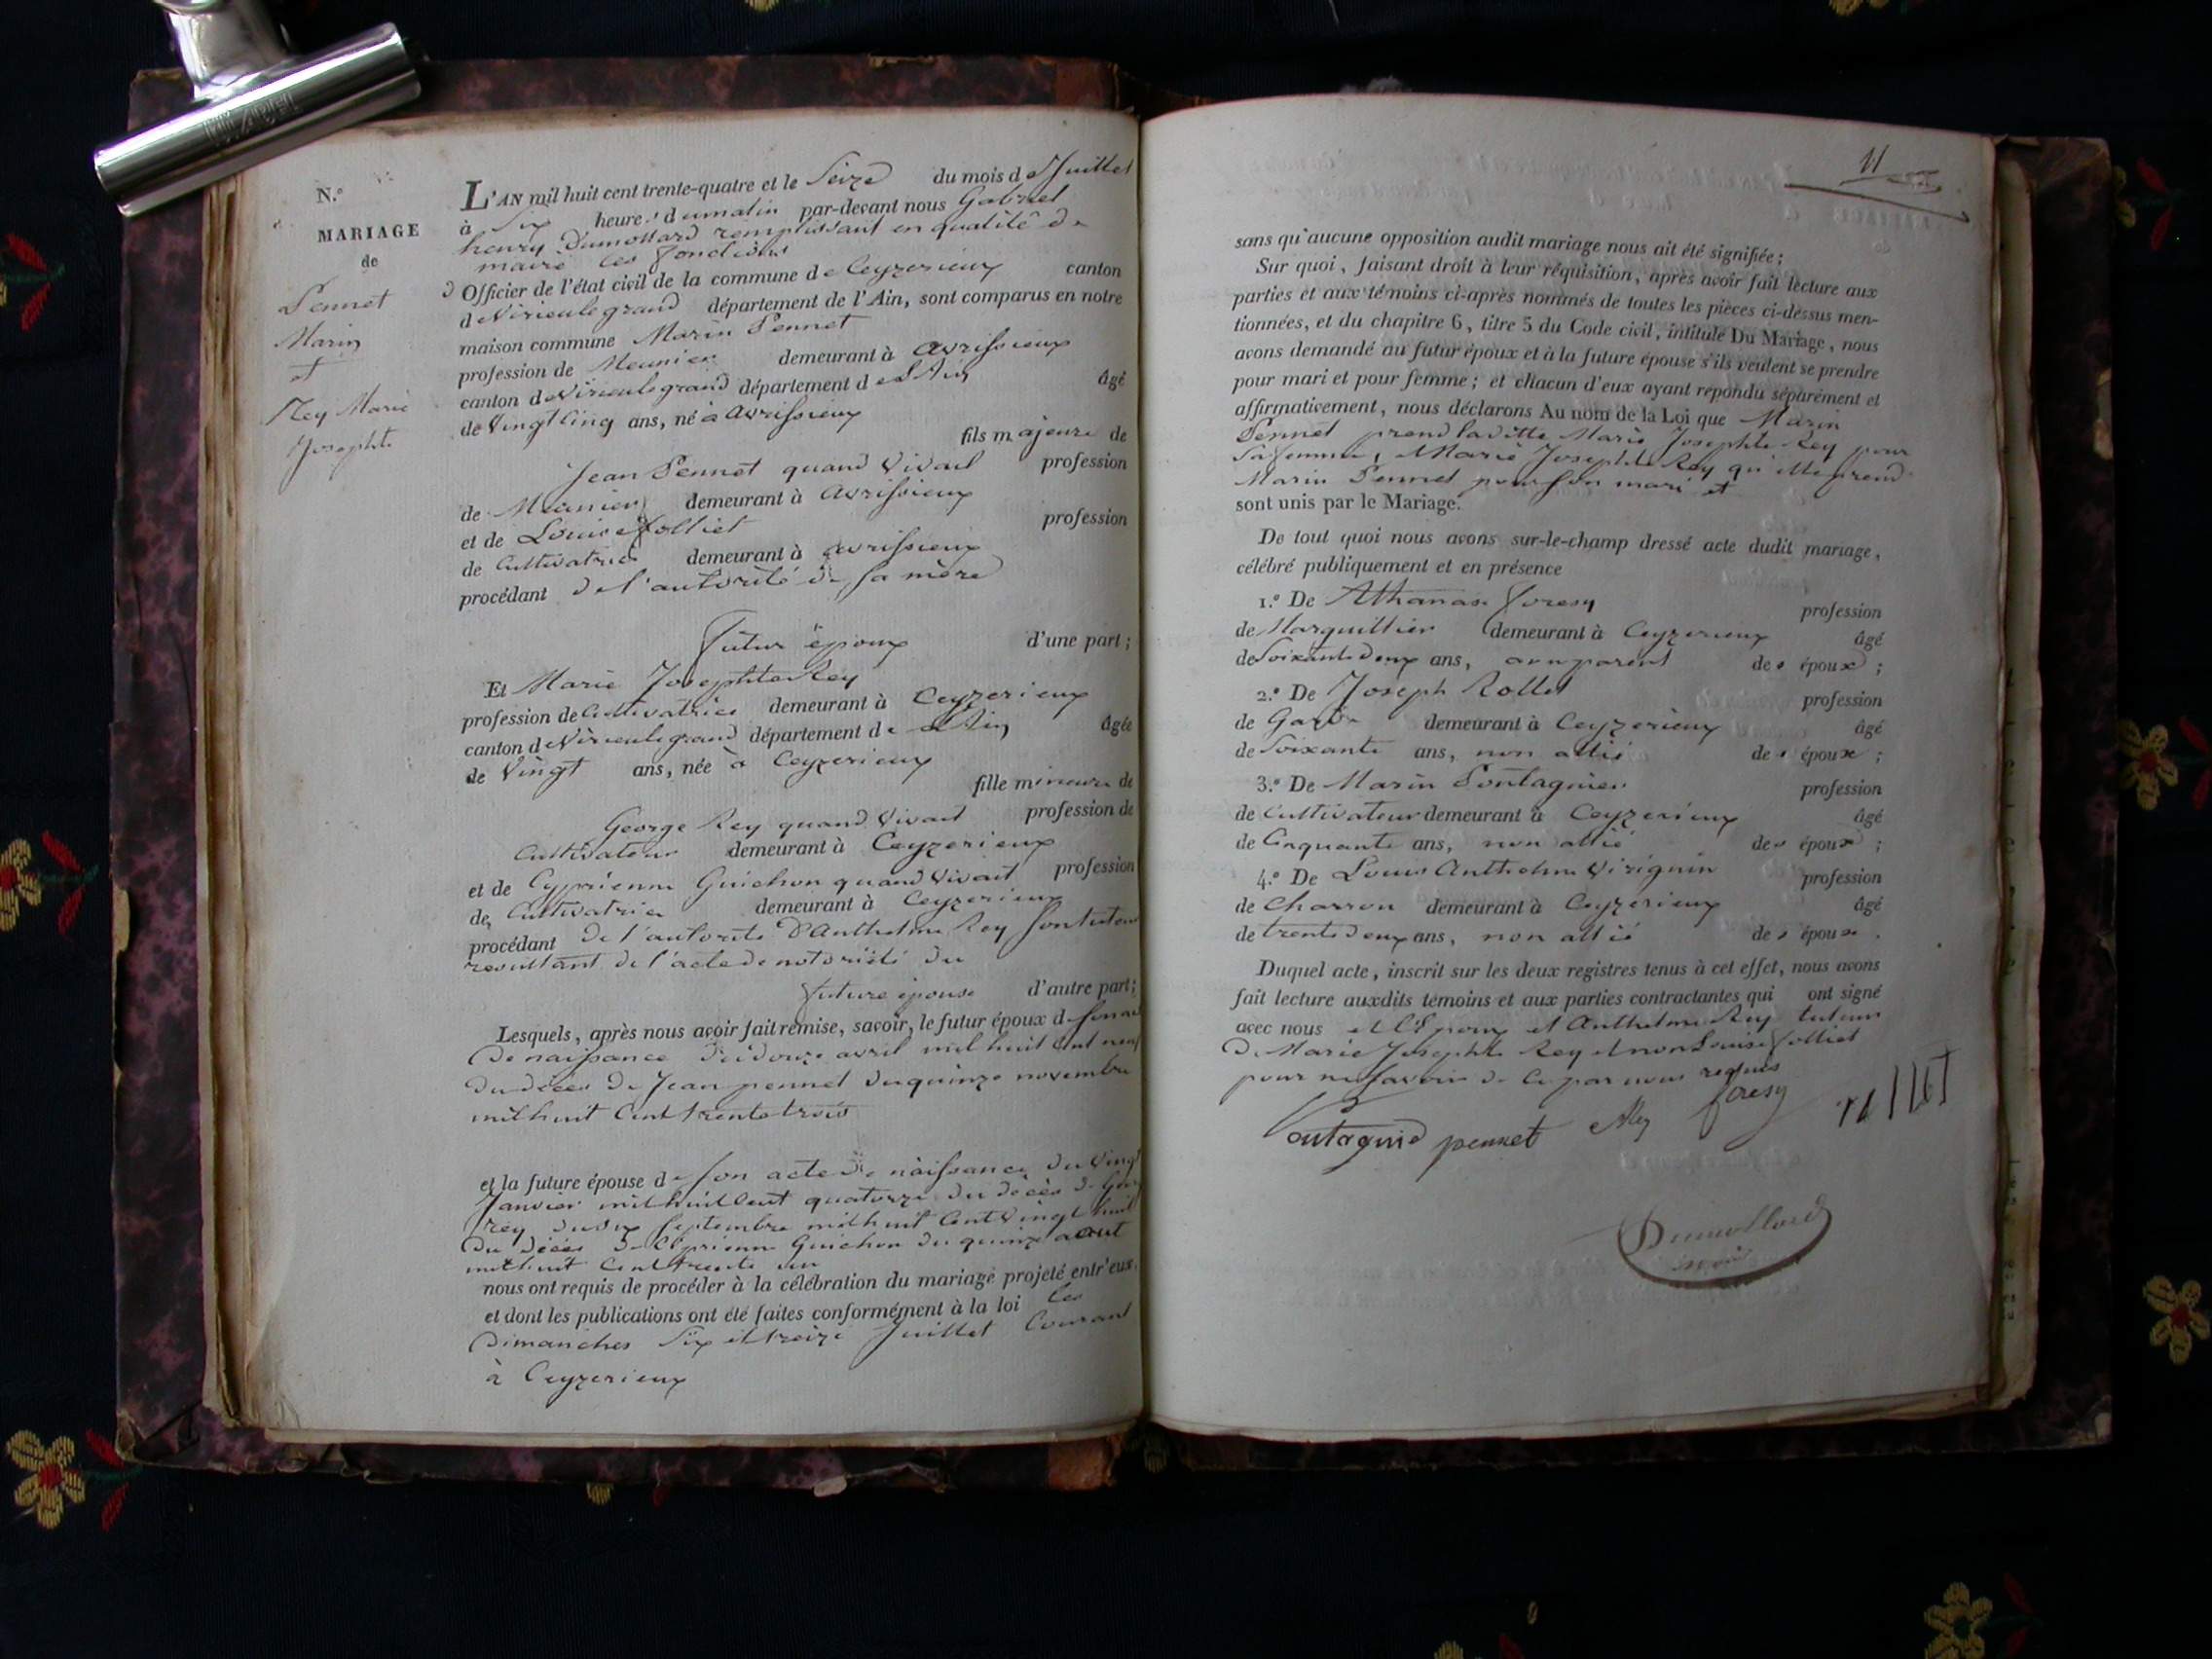 N.º
MARIAGE
de
Pennet
Marin
et
Rey Marie
Josephte
L'AN mil huit cent trente-quatre et le Seize du mois de Juillet
à Six heures du matin par-devant nous Gabriel
henry Dumollard remplissant en qualité de
maire les fonctions
d'Officier de l'état civil de la commune de Ceyzerieux canton
de Virieulegrand département de l'Ain, sont comparus en notre
maison commune Marin Pennet
profession de Meunier demeurant à avrissieux
canton de Virieulegrand département de l'Ain âgé
de Vingt Cinq ans, né à avrissieux
fils majeure de
Jean Pennet quand Vivait profession
de Meunier demeurant à avrissieux
et de Louise Jolliet profession
de Cultivatrice demeurant à avrissieux
procédant de l'autorité de sa mère
futur époux d'une part ;
Et Marie Josephte Rey
profession de Cultivatrice demeurant à Ceyzerieux
canton de Virieulegrand département de l'Ain âgée
de Vingt ans, née à Ceyzerieux
fille mineure de
George Rey quand Vivait profession de
Cultivateur demeurant à Ceyzerieux
et de Cyprienne Guichon quand Vivait profession
de Cultivatrice demeurant à Ceyzerieux
procédant de l'autorité d'Anthelme Rey son tuteur
resultant de l'acte de notoriété du
future épouse d'autre part ;
Lesquels, après nous avoir fait remise, savoir, le futur époux de son
de naissance du douze avril mil huit Cent neuf
du décès de Jean pennet du quinze novembre
mil huit Cent trente trois
et la future épouse de son acte de naissance du Vingt
Janvier mil huit Cent quatorze du décès de
rey du Septembre mil huit Cent Vingt huit
du décès de Cyprienne Guichon du quinze aout
mil huit Cent trente un
nous ont requis de procéder à la célébration du mariage projeté entr'eux
et dont les publications ont été faites conformément à la loi les
Dimanches Six et treize Juillet Courant
à Ceyzerieux
11
sans qu'aucune opposition audit mariage nous ait été signifiée ;
Sur quoi, faisant droit à leur réquisition, après avoir fait lecture aux
parties et aux témoins ci-après nommés de toutes les pièces ci-dessus men-
tionnées, et du chapitre 6, titre 5 du Code civil, intitulé Du Mariage, nous
avons demandé au futur époux et à la future épouse s'ils veulent se prendre
pour mari et pour femme ; et chacun d'eux ayant répondu séparément et
affirmativement, nous déclarons Au nom de la Loi que Marin
Pennet prend laditte Marie Josephte Rey pour
Sa femme, Marie Josephte Rey qu'elle prend
Marin Pennet pour son mari et
sont unis par le Mariage.
De tout quoi nous avons sur-le-champ dressé acte dudit mariage,
célébré publiquement et en présence
1.º De Athanase foresy profession
de Marguillier demeurant à Ceyzerieux âgé
de Soixante deux ans, parent des époux ;
2.º De Joseph Rollet profession
de Garde demeurant à Ceyzerieux âgé
de Soixante ans, non allié des époux ;
3.º De Marin Pontagnier profession
de Cultivateur demeurant à Ceyzerieux âgé
de Cinquante ans, non allié des époux ;
4.º De Louis Anthelme Virignin profession
de Charron demeurant à Ceyzerieux âgé
de trente deux ans, non allié des époux.
Duquel acte, inscrit sur les deux registres tenus à cet effet, nous avons
fait lecture auxdits témoins et aux parties contractantes qui ont signé
avec nous et l'Epoux et Anthelme Rey tuteur
de Marie Josephte Rey et non Louise Jolliet
pour ne savoir de Ce par nous requis
pennet Rey foresy
Dumollard
maire